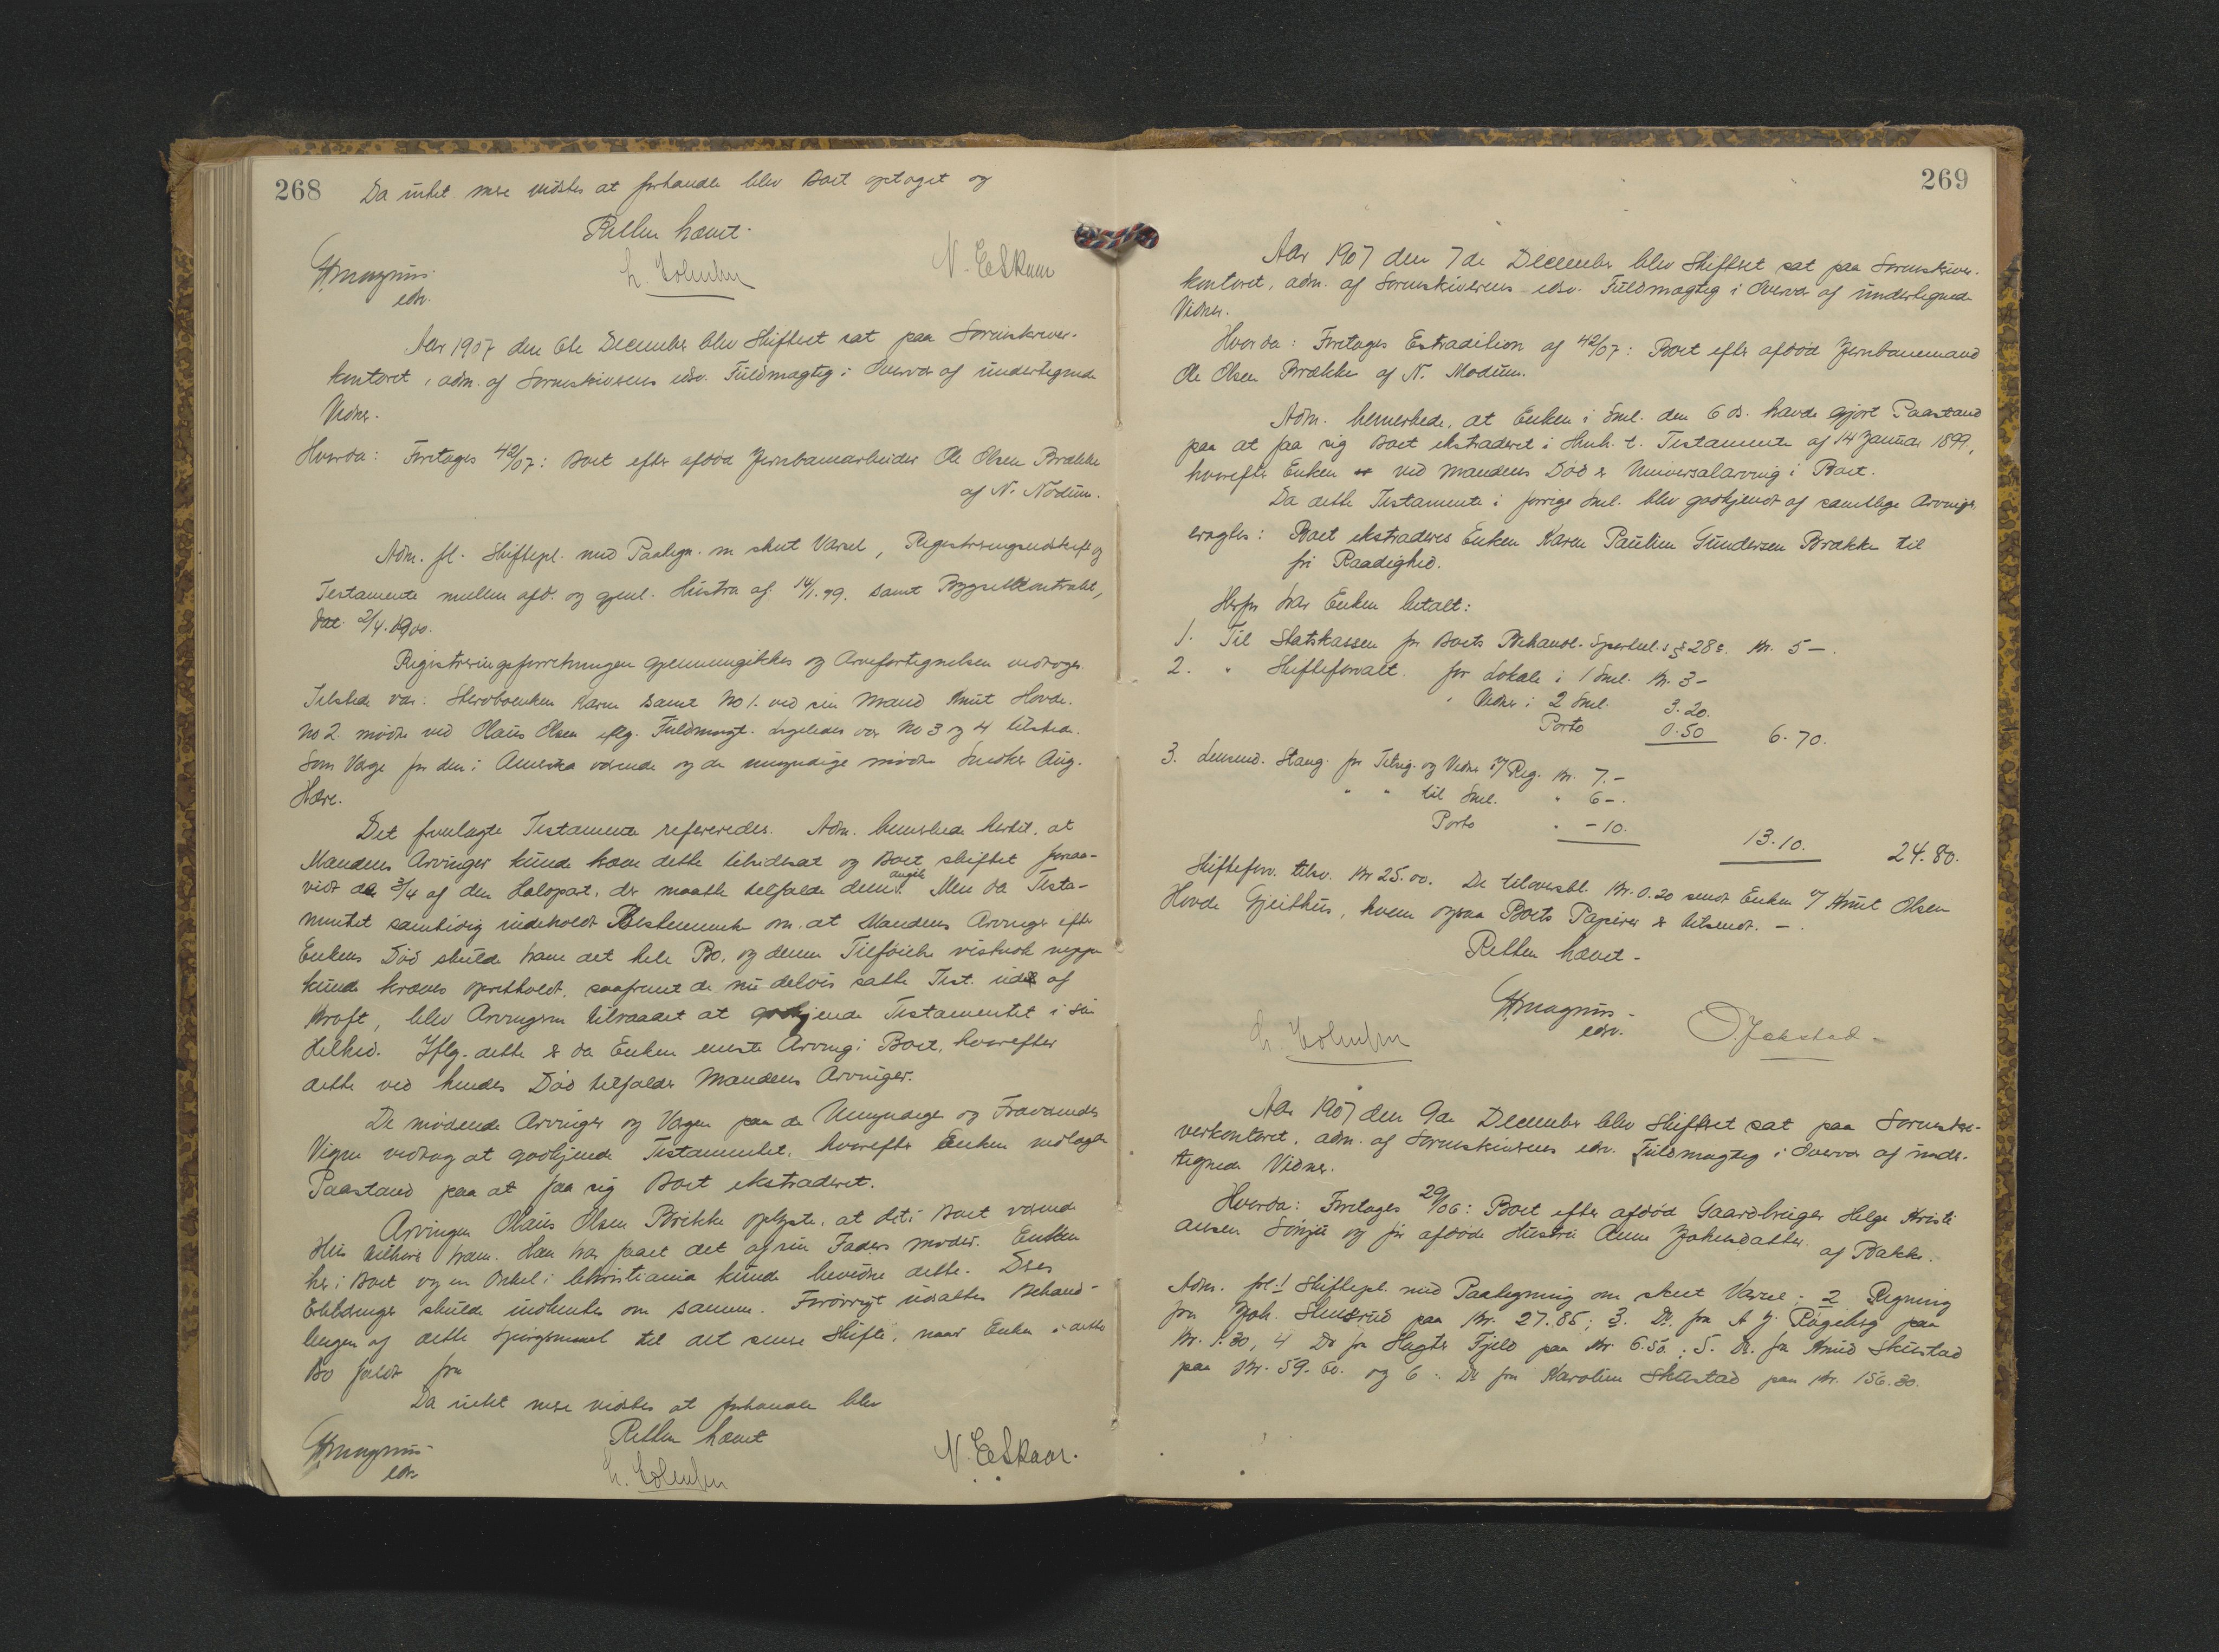 268
Da intet mere vidstes at forhandle blev Boet optaget og
Retten hævet.
Magnus
edsv.
N. E. Skaar
Aar 1907 den 6te December blev Skifteret sat paa Sorenskriver-
kontoret, adm. af Sorenskriverens edsv. Fuldmægtig i Overvær af undertegnede
Vidner.
Hvorda: Foretages 42/07: Boet efter afdød Jernbanearbeider Ole Olsen Brække
af N. Modum.
Adm. fl. Skiftepl. med Paategn. m skeet Varsel, Registreringsudskrift og
Testamente mellem afd. og gjenl. Hustru af 14/1.99. samt Bygselkontrakt,
dat. 2/4.1900.
Registreringsforretningen gjennemgikkes og Arvefortegnelsen vedtoges.
Tilstede var: Sterboenken Karen samt No 1. ved sin Mand Knut Hovde.
No 2 mødte ved Olaus Olsen iflg. Fuldmagt. Ligeledes var No 3 og 4 tilstede.
Som Verge for den i Amerika værende og de umyndige mødte Snedker Aug.
Hære.
Det fremlagte Testamente refereredes. Adm. bemerkede hertil, at
Mandens Arvinger kunde have dette tilsidesat og Boet skiftet forsaa-
vidt de 3/4 af den Halvpart, der maatte tilfalde dem angik. Men da Testa-
mentet samtidig indeholdt Bestemmelse om, at Mandens Arvinger efter
Enkens Død skulde have det hele Bo, og denne Tilføielse vistnok neppe
kunde kræves opretholdt, saafremt de nu delvis satte Test. ud af
Kraft, blev Arvingerne tilraadet at godkjende Testamentet i sin
Helhed. Iflg. dette er da Enken eneste Arving i Boet, hvorefter
dette ved hendes Død tilfalder Mandens Arvinger.
De mødende Arvinger og Vergen paa de Umyndiges og Fraværendes
Vegne vedtog at godkjende Testamentet, hvorefter Enken nedlagde
Paastand paa at faa sig Boet ekstraderet.
Arvingen Olaus Olsen Brække oplyste, at det i Boet værende
Hus tilhører ham. Han har faaet det af sin Faders moder. Enken
her i Boet og en Onkel i Christiania kunde bevidne dette. Deres
Erklæringer skulde indhentes om samme. Forøvrigt udsattes Behand-
lingen af dette Spørgsmaal til det senere Skifte, naar Enken i dette
Bo faldt fra
Da intet mere vidstes at forhandle blev
Retten hævet
Magnus
edsv.
N. E. Skaar.
269
Aar 1907 den 7de December blev Skifteret sat paa Sorenskriver-
kontoret, adm. af Sorenskriverens edsv. Fuldmægtig i Overvær af undertegnede
Vidner.
Hvorda: Foretages Extradition af 42/07: Boet efter afdød Jernbanemand
Ole Olsen Brække af N. Modum.
Adm. bemerkede, at Enken i Sml. den 6 ds. havde gjort Paastand
paa at faa sig Boet ekstraderet i Henh. t. Testamente af 14 Januar 1899,
hvorefter Enken ved Mandens Død er Universalarving i Boet.
Da dette Testamente i forrige Sml. blev godkjendt af samtlige Arvinger
eragtes: Boet ekstraderes Enken Karen Pauline Gundersen Brække til
fri Raadighed.
Herfor har Enken betalt:
1. Til Statskassen for Boets Behandl. Sportell. § 28 Kr. 5 -.
2. " Skifteforvalt. for Lokale i 1 Sml. Kr. 3 -
" Vidner i 2 Sml. 3.20.
Porto 0.50 6.70.
3. Lensmd. Stang for Tilsig. og Vidner v/ Reg. Kr. 7.-
" " til Sml. " 6 -.
Porto " - 10. 13.10. 24.80.
Skifteforv. tilsv. Kr 25.00. De tiloversbl. Kr. 0.20 sendt Enken v/ Knut Olsen
Hovde Gjeithus, hvem ogsaa Boets Papirer er tilsendt. -.
Retten hævet -
Magnus
edsv.
O. Jekstad
Aar 1907 den 9de December blev Skifteret sat paa Sorenskri-
verkontoret, adm. af Sorenskriverens edsv. Fuldmægtig i Overvær af under-
tegnede Vidner.
Hvorda: Foretages 29/06: Boet efter afdød Gaardbruger Helge Kristi-
ansen og før afdøde Hustru Anne Johnsdatter af Bakke.
Adm. frl. 1 Skiftepl. med Paategning om skeet Varsel. 2 Regning
fra Joh. paa Kr. 27.85; 3. Do. fra A. J. Rogeberg paa
Kr. 1.30, 4 Do fra Fjeld paa Kr 6.50; 5. Do. fra Knud Skustad
paa Kr. 59.60. og 6: Do fra Karoline Skustad paa Kr. 156.30.